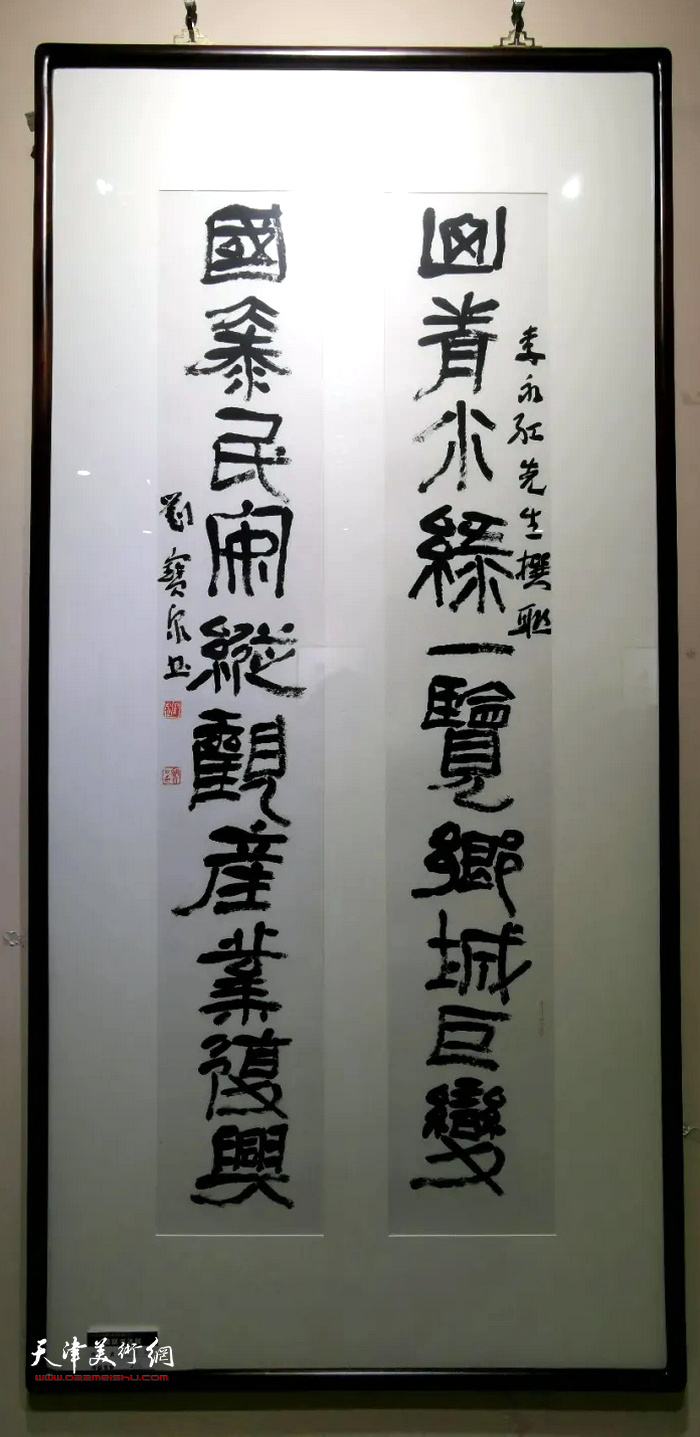 山青水綠一覽鄉城巨變
李永紅先生撰聯
國泰民安縱觀產業復興
劉寶泉书
天津美術網
www.022meishu.com